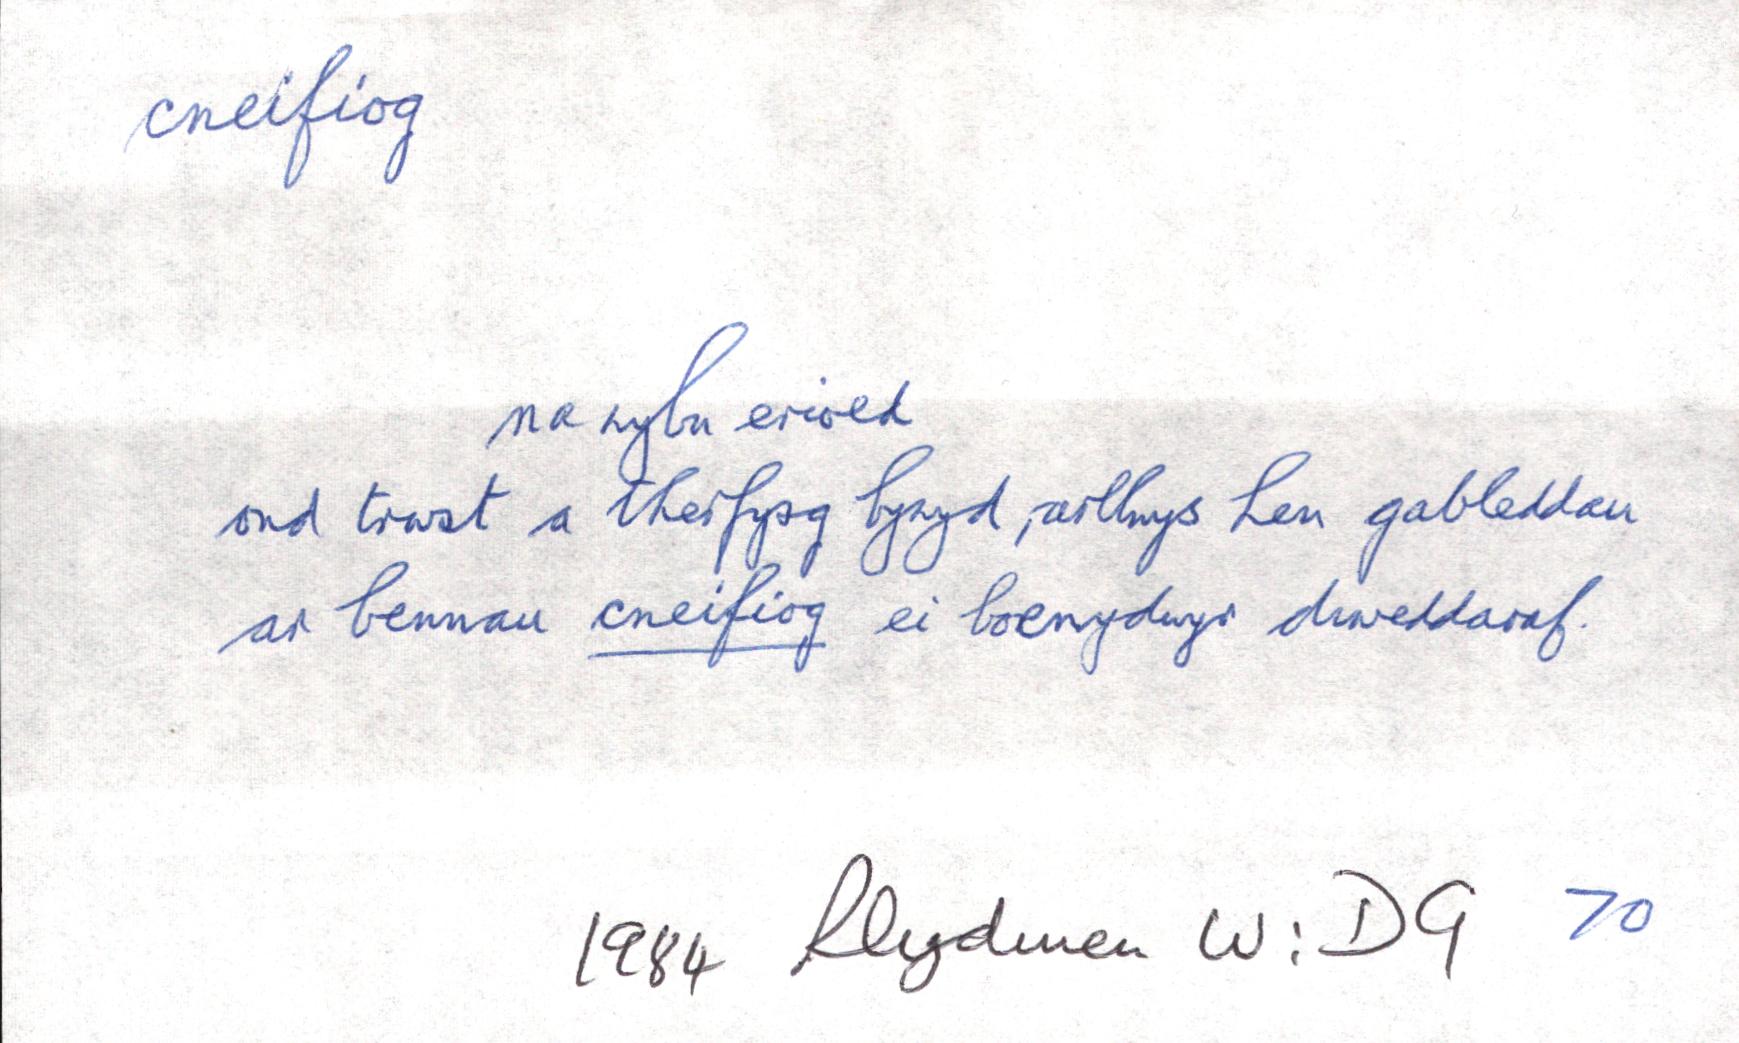 cneifiog
na wybu erioed
ond trwst a therfysg bywyd, arllwys hen gableddau
ar bennau cneifiog ei boenydwyr diweddaraf.
1984 Rhydwen W: DG 70